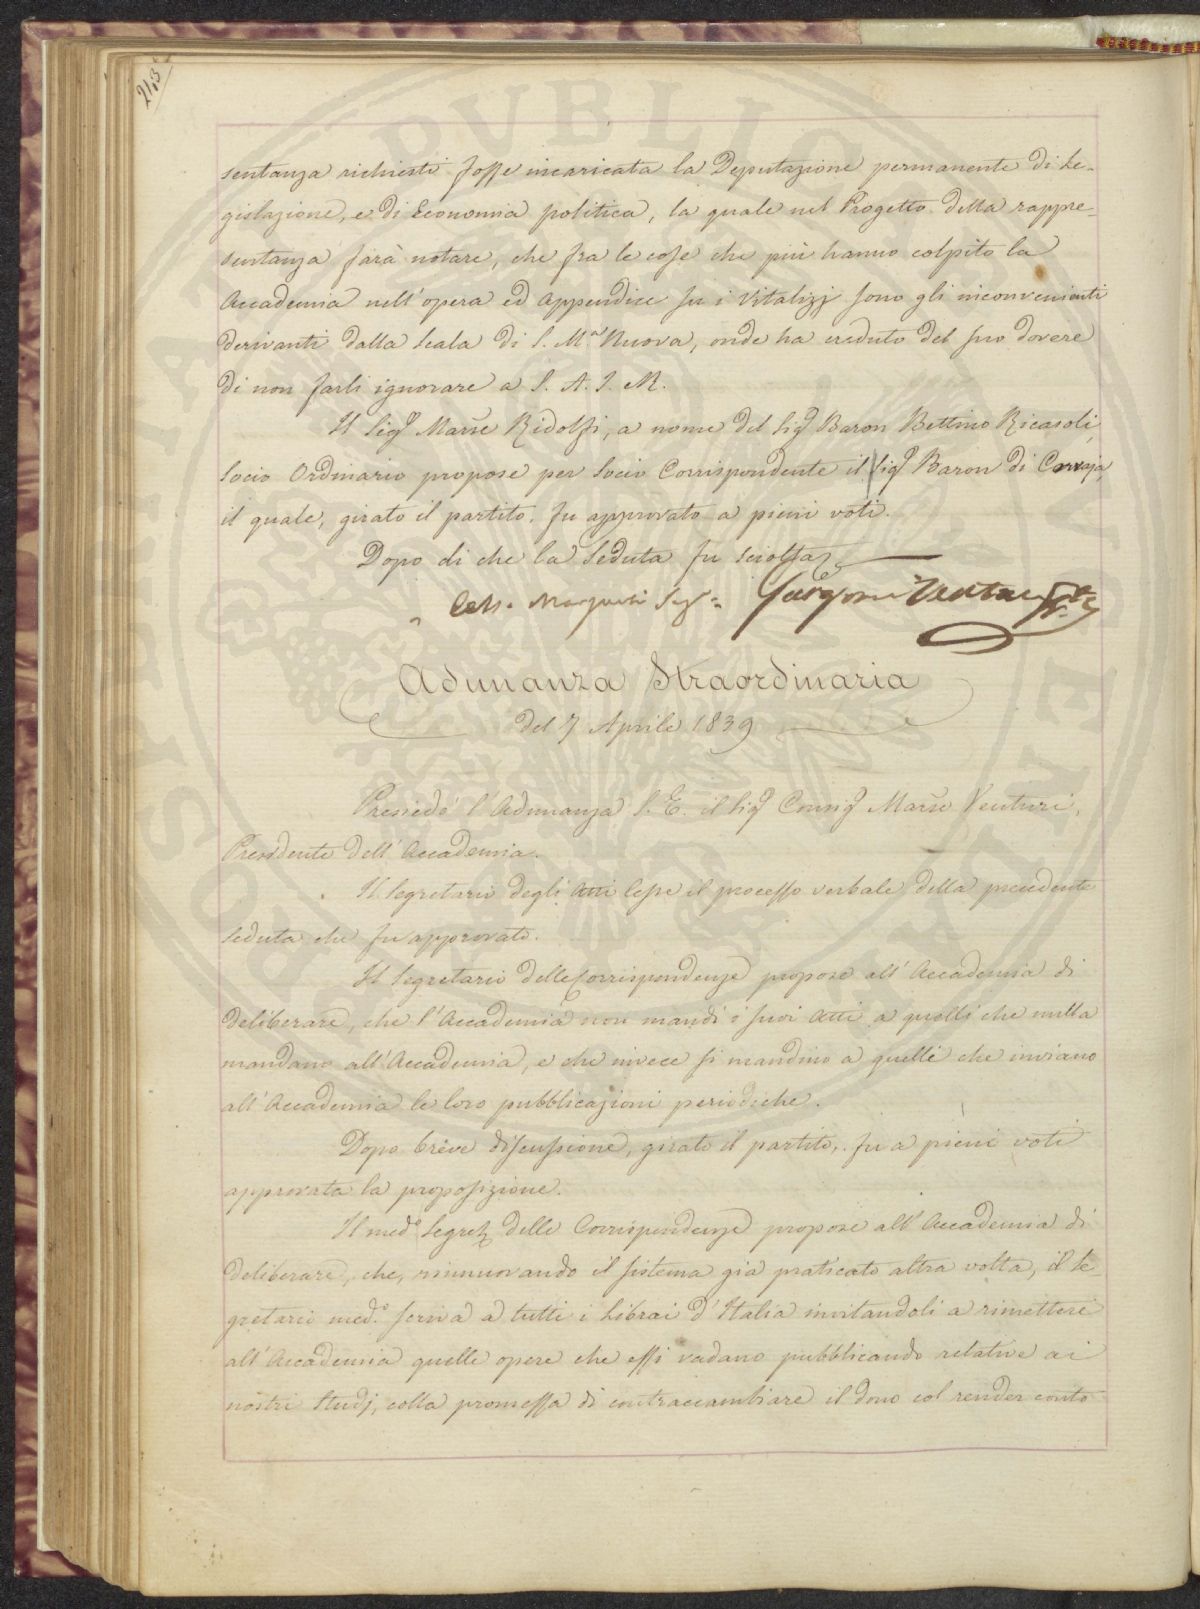 213
sentanza richiesti fosse incaricata la Deputazione permanente di Le-
gislazione, e di Economia politica, la quale nel Progetto della rappre-
sentanza farà notare, che fra le cose che più hanno colpito la
Accademia nell'opera ed appendice su i Vitalizj sono gli inconvenienti
derivanti dalla Scala di S. Mª Nuova, onde ha creduto del suo dovere
di non farli ignorare a S. A. I. R.
Il Sigr Marse Ridolfi, a nome del Sigr Baron Bettino Ricasoli,
Socio Ordinario propose per Socio Corrispondente il Sigr Baron di
il quale, girato il partito, fu approvato a pieni voti.
Dopo di che la Seduta fu sciolta
Adunanza Straordinaria
del 7 Aprile 1839
Presiedé l'Adunanza S. E. il Sigr Consigr Marse Venturi,
Presidente dell'Accademia.
Il Segretario degli Atti lesse il processo verbale della precedente
Seduta che fu approvato.
Il Segretario delle Corrispondenze propose all'Accademia di
deliberare, che l'Accademia non mandi i suoi Atti a quelli che nulla
mandano all'Accademia, e che invece si mandino a quelli che inviano
all'Accademia le loro pubblicazioni periodiche.
Dopo breve discussione, girato il partito, fu a pieni voti
approvata la proposizione.
Il medº Segret. delle Corrispondenze propose all'Accademia di
deliberare, che, rinnuovando il sistema già praticato altra volta, il Se-
gretario medº scriva a tutti i Librai d'Italia invitandoli a rimettere
all'Accademia quelle opere che essi vadano pubblicando relative ai
nostri Studj, colla promessa di contraccambiare il dono col render conto